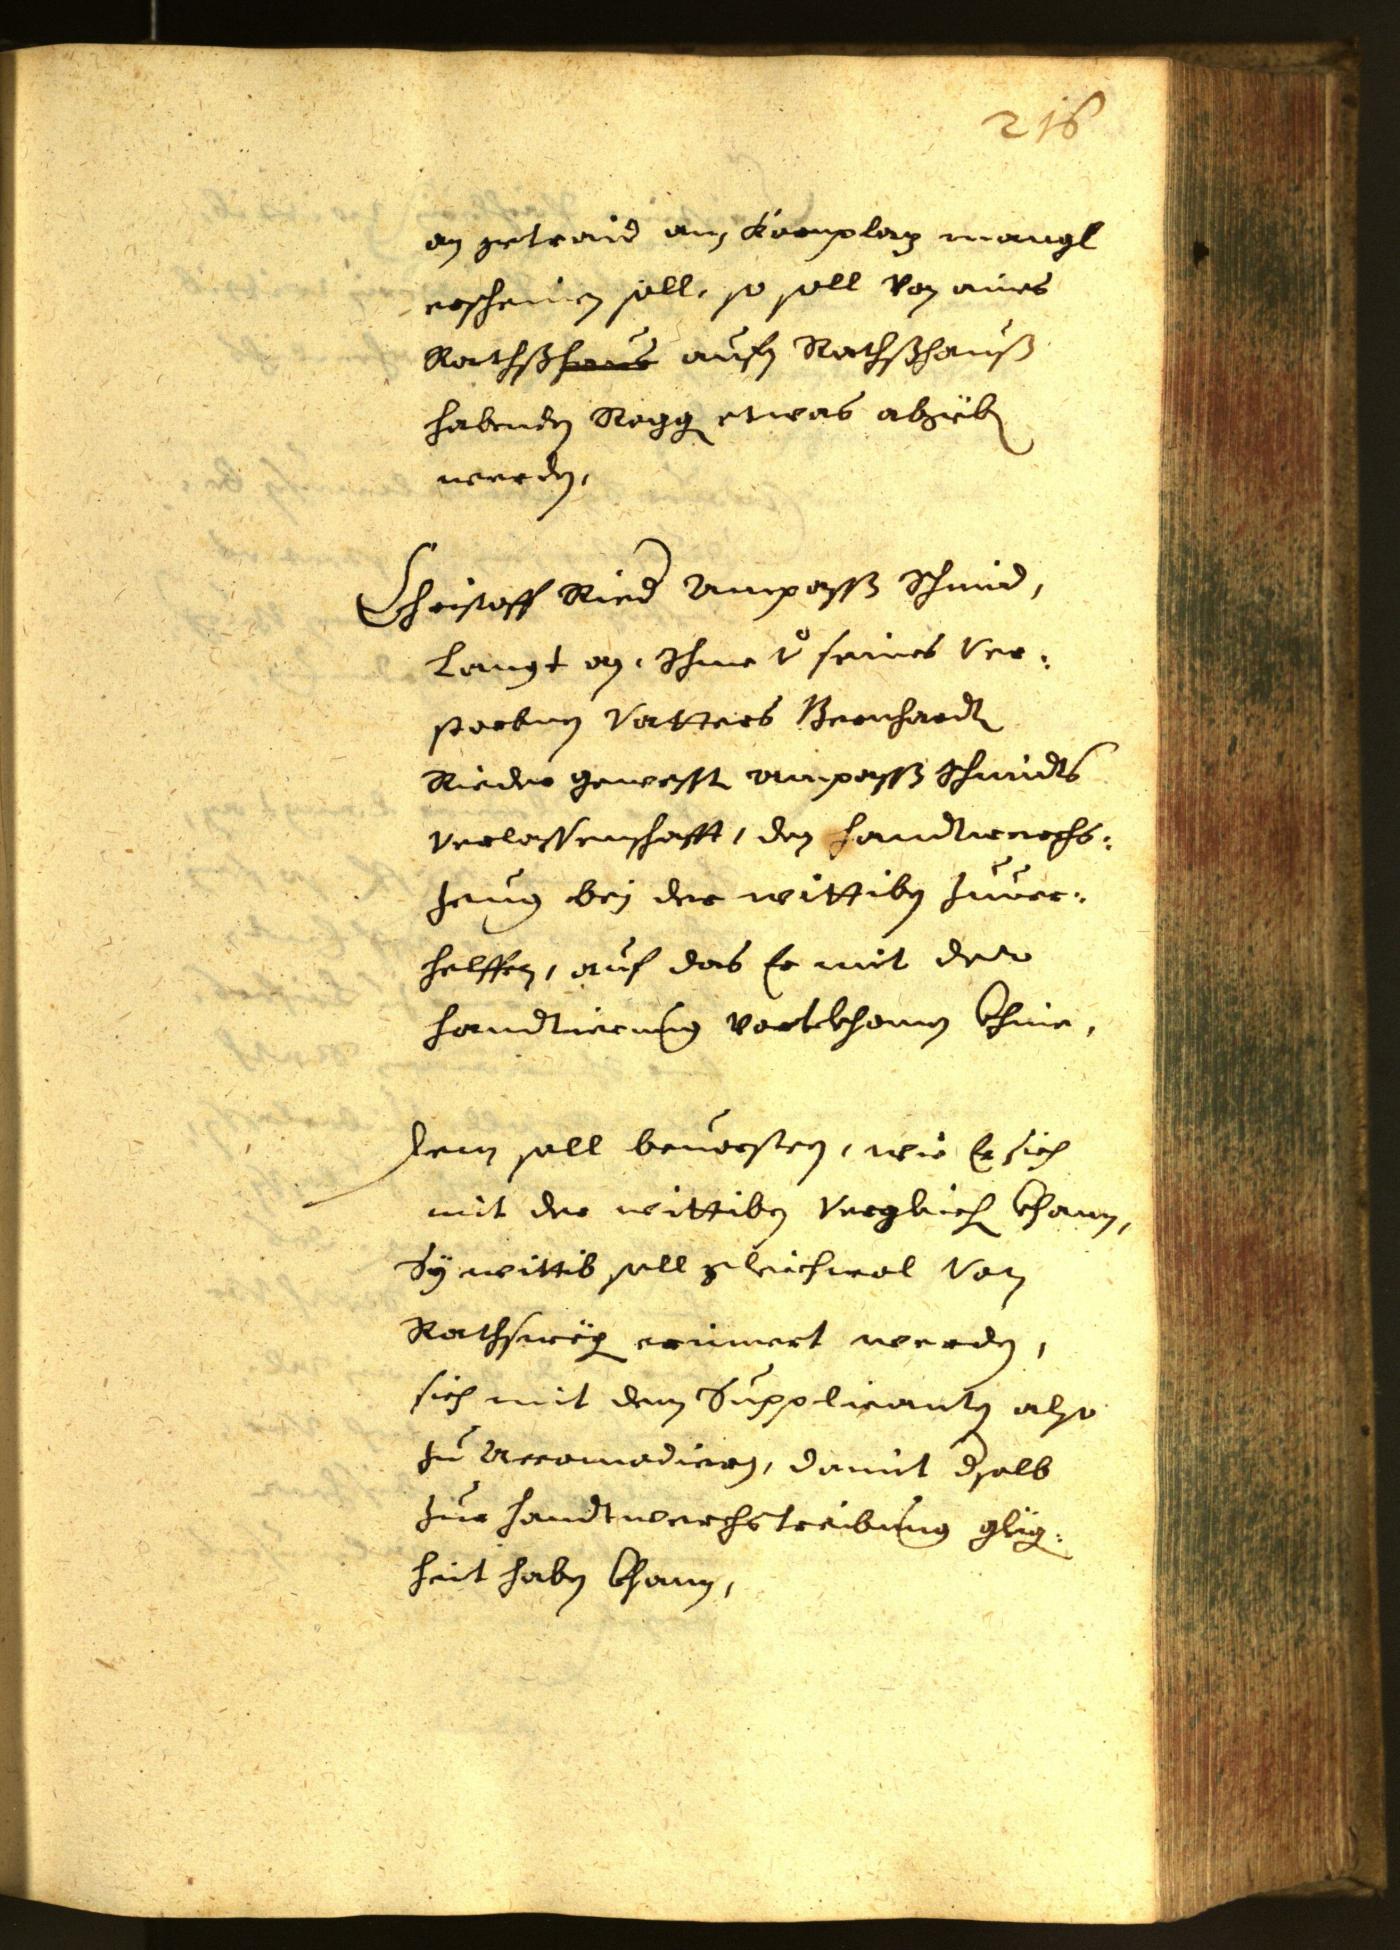 216
an getraid am Kornplaz mangl
erscheinen soll, so soll von aines
Rathßhaus aufm Rathßhauß
habenden Rogg etwas abzigeben
werden,
Christoff Ried Ampaß Schmid,
langt an, Ihme v̊ seines ver:
storbnen Vatters Bernhardt
Rieder gewesst Ampaß Schmidts
verlassenschafft, den handtwerchs:
zeug bey der wittiben zuver:
helffen, auf das Er mit der
handtierung vortkhomen khine,
dem soll bevorsten, wie Er sich
mit der wittiben vergleichen khann,
Sÿ wittib soll gleichwol von
Rathsweg erinnert werden,
sich mit dem Supplicanten also
zu Accomodiern, damit dselb
zur handtwerchstreibung gleg:
heit haben khann,